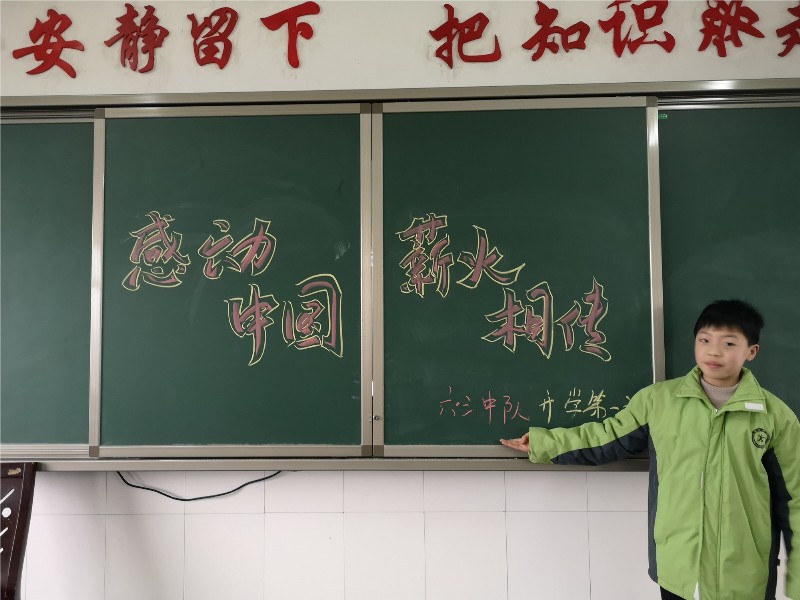 安静留下 把知识
感动
中国
薪火
相传
六(三)中队 开学第一